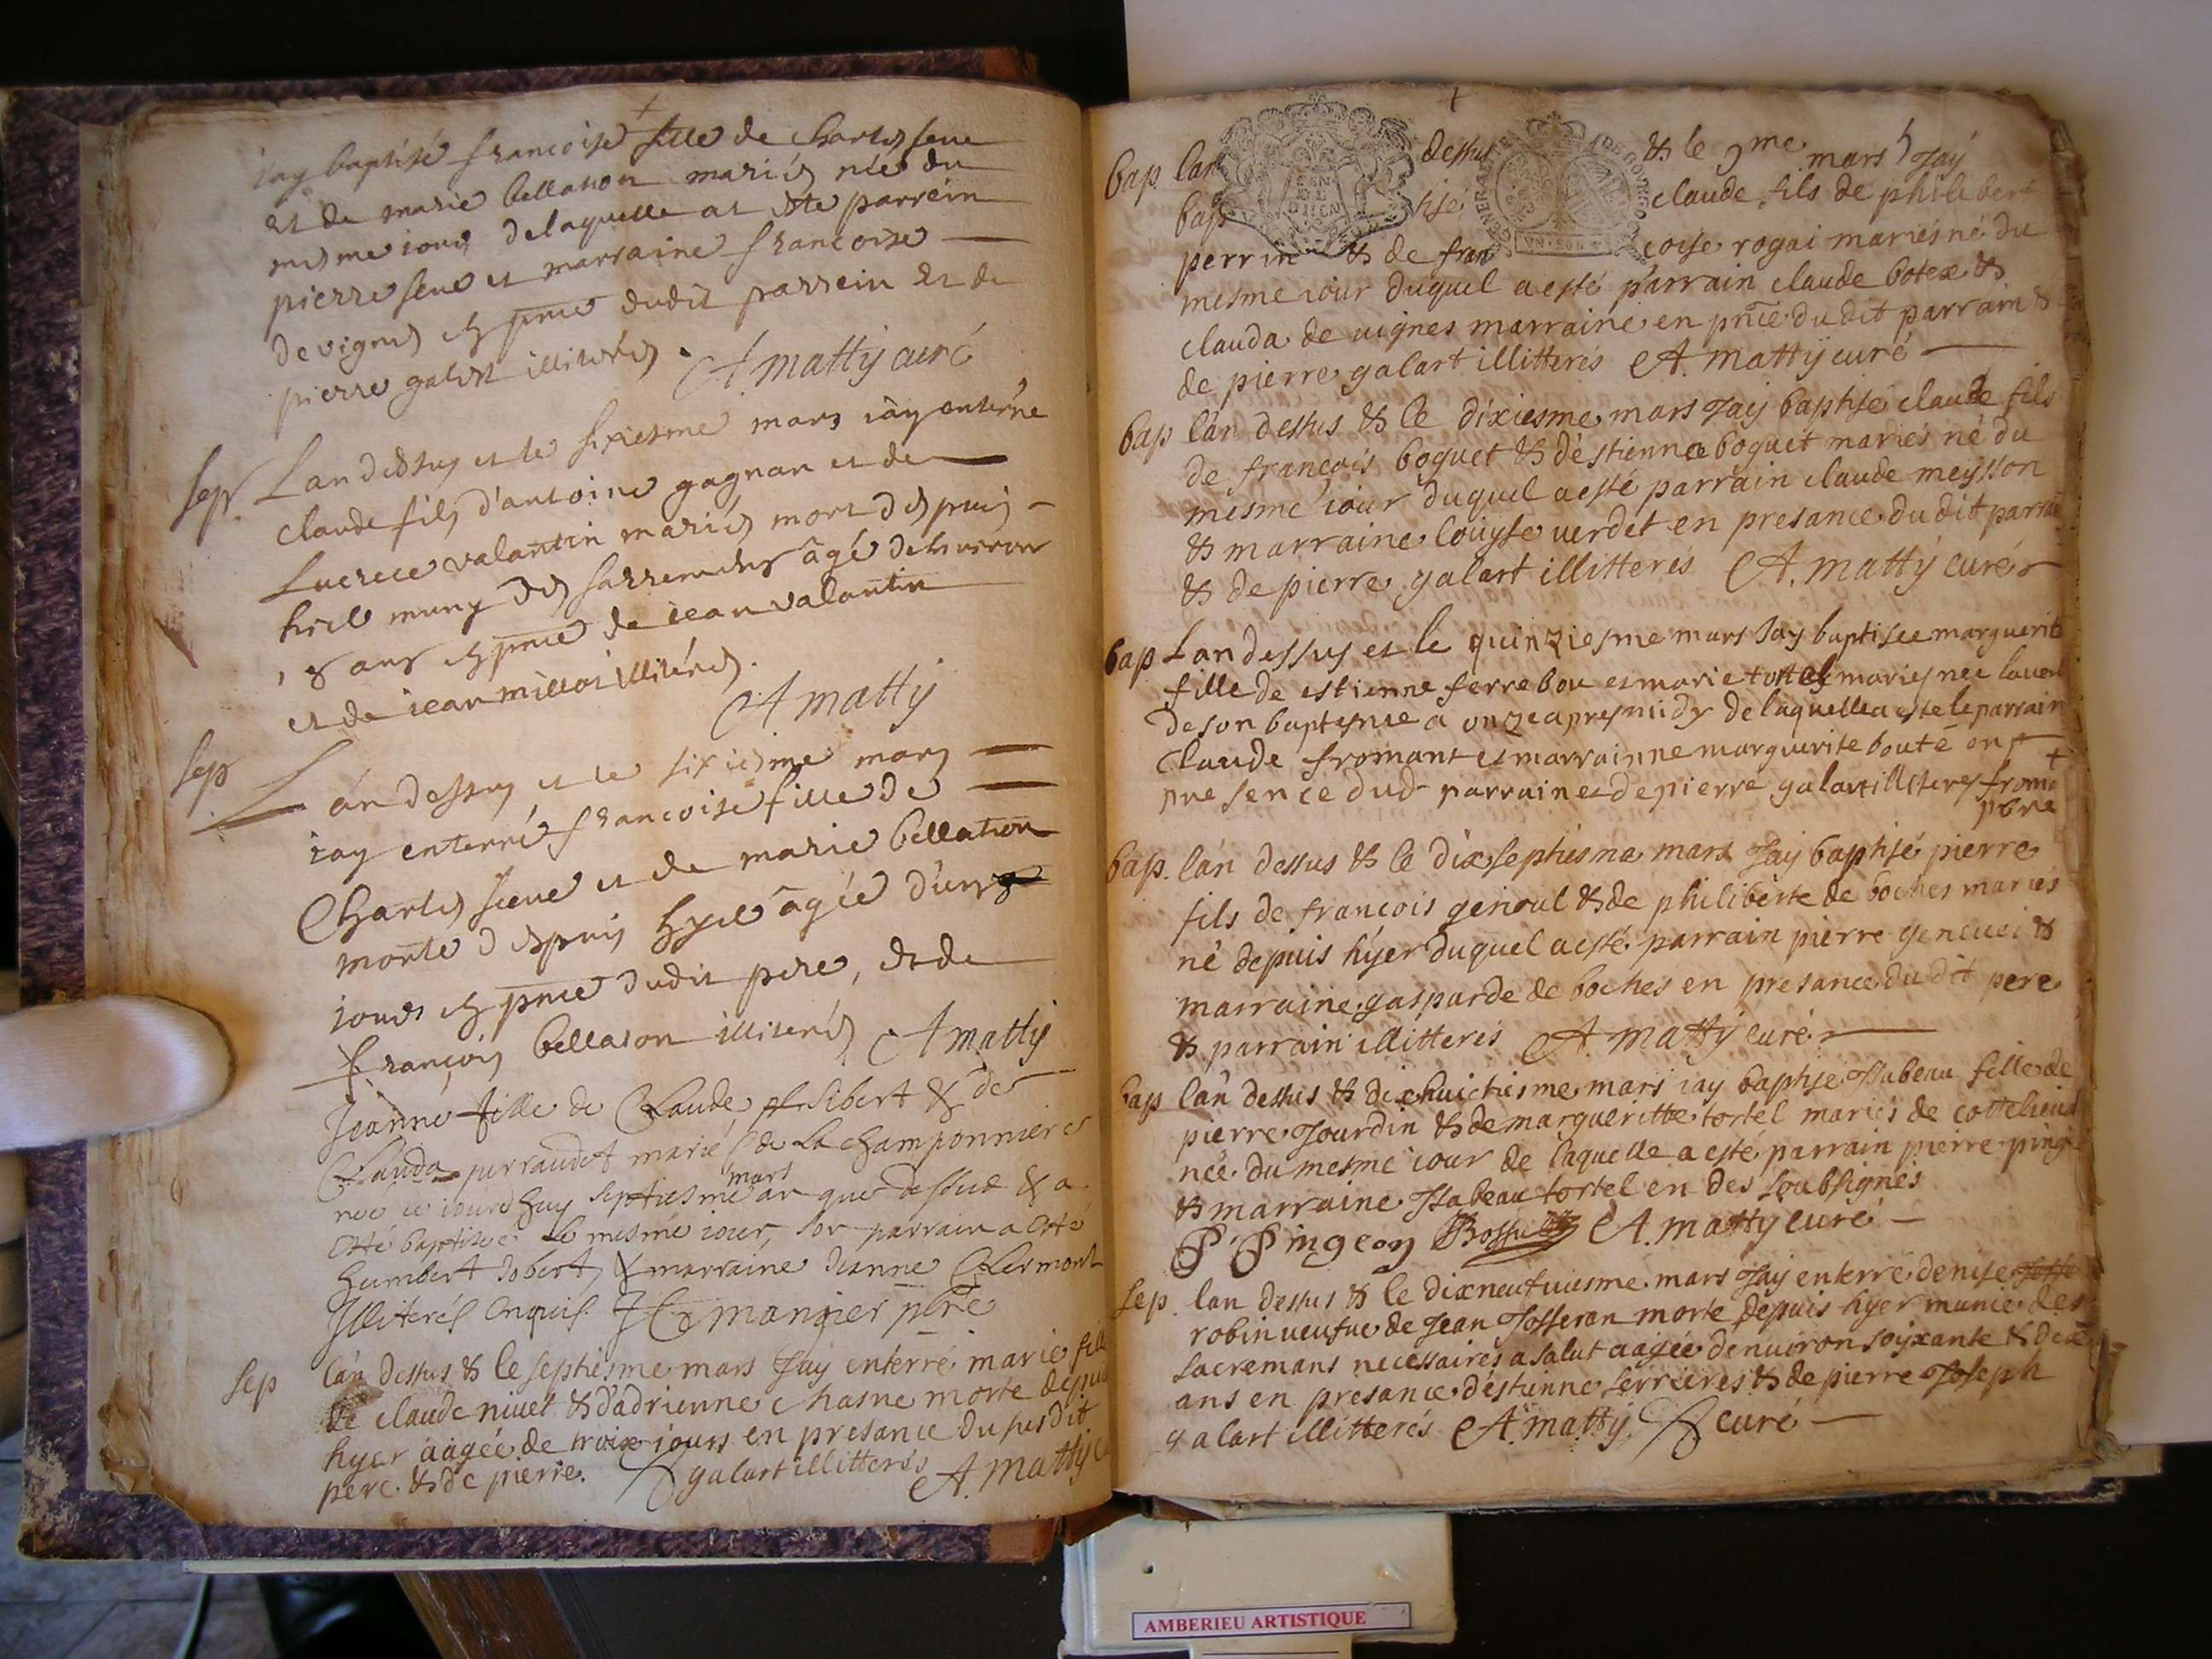 iay baptisé francoise fille de Charles seue
et de marie bellaton mariés née du
mesme iour de laquelle at esté parrein
pierre seue et marraine francoise
devignes en pnce dudit parrein et de
pierre galart illiterés. A matty curé
sep. Lan dessus et le sixiesme mars iay enterré
claude fils d'antoine gagnan et de
Lucrece valantin mariés mort despuis
hier muny des âgé denviron
ans en pnce de iean valantin
et de iean millot illiterés.
A matty
sep L'an dessus et le sixiesme mars
iay enterré francoise fille de
Charles seue et de marie bellaton
morte despuis hyer âgée d'un
jours en pnce dudit pere, et de
françois bellaton illiterés A matty
Jeanne fille de Claude & de
Clauda perraudet marié de La Champonniere
née ce iourdhuy septiesme mars an que dessus & a
esté baptisée le mesme iour, son parrain a esté
humbert Jobert, & marraine Jeanne Clermont
Illiterés Enquis. mangier pbre
sep lan dessus & le septiesme mars Jay enterré marie fille
de claude niuet & d'adrienne chasne morte depuis
hyer aagée de troix iours en presance du susdit
pere & de pierre galart illitterés A. matty
bap lan dessus & le 9me mars Jay
baptisé claude fils de philibert
perrin & de francoise rogai mariés né du
mesme iour duquel a esté parrain claude botex &
clauda de uignes marraine en pnce du dit parrain &
de pierre galart illitterés A. matty curé
bap lan dessus & le dixiesme mars Jay baptisé claude fils
de francois boguet & d'estienne boguet mariés né du
mesme iour duquel a esté parrain claude meysson
& marraine louyse verdet en presance du dit parrain
& de pierre galart illitterés A. matty curé
bap Lan dessus et le quinziesme mars Jay baptisee marguerite
fille de estienne ferrebou et marie tortel mariés nee
de son baptesme a onze apres midy de laquelle a este le parrain
Claude fromant et marrainne marguerite bouté en
presence dud parrain et de pierre galart illiteres
pbre
bap. lan dessus & le dix septiesme mars Jay baptisé pierre
fils de francois genoul & de philiberte de boches mariés
né depuis hyer duquel a esté parrain pierre &
marraine gasparde de boches en presance du dit pere
& parrain illitterés A. matty curé
bap lan dessus & dixhuictiesme mars iay baptisé Isabeau fille de
pierre Jourdin & de margueritte tortel mariés de cottelieu
née du mesme iour de laquelle a esté parrain pierre
& marraine Isabeau tortel en des soubsignés
P. Pingeon A. matty curé
sep. lan dessus & le dixneufuiesme mars Jay enterré denise
robin ueufue de Jean Josseran morte depuis hyer munie des
sacremans necessaires a salut aagée denuiron soixante & dix
ans en presance d'estienne serrieres & de pierre Joseph
galart illitterés A. matty curé
AMBERIEU ARTISTIQUE